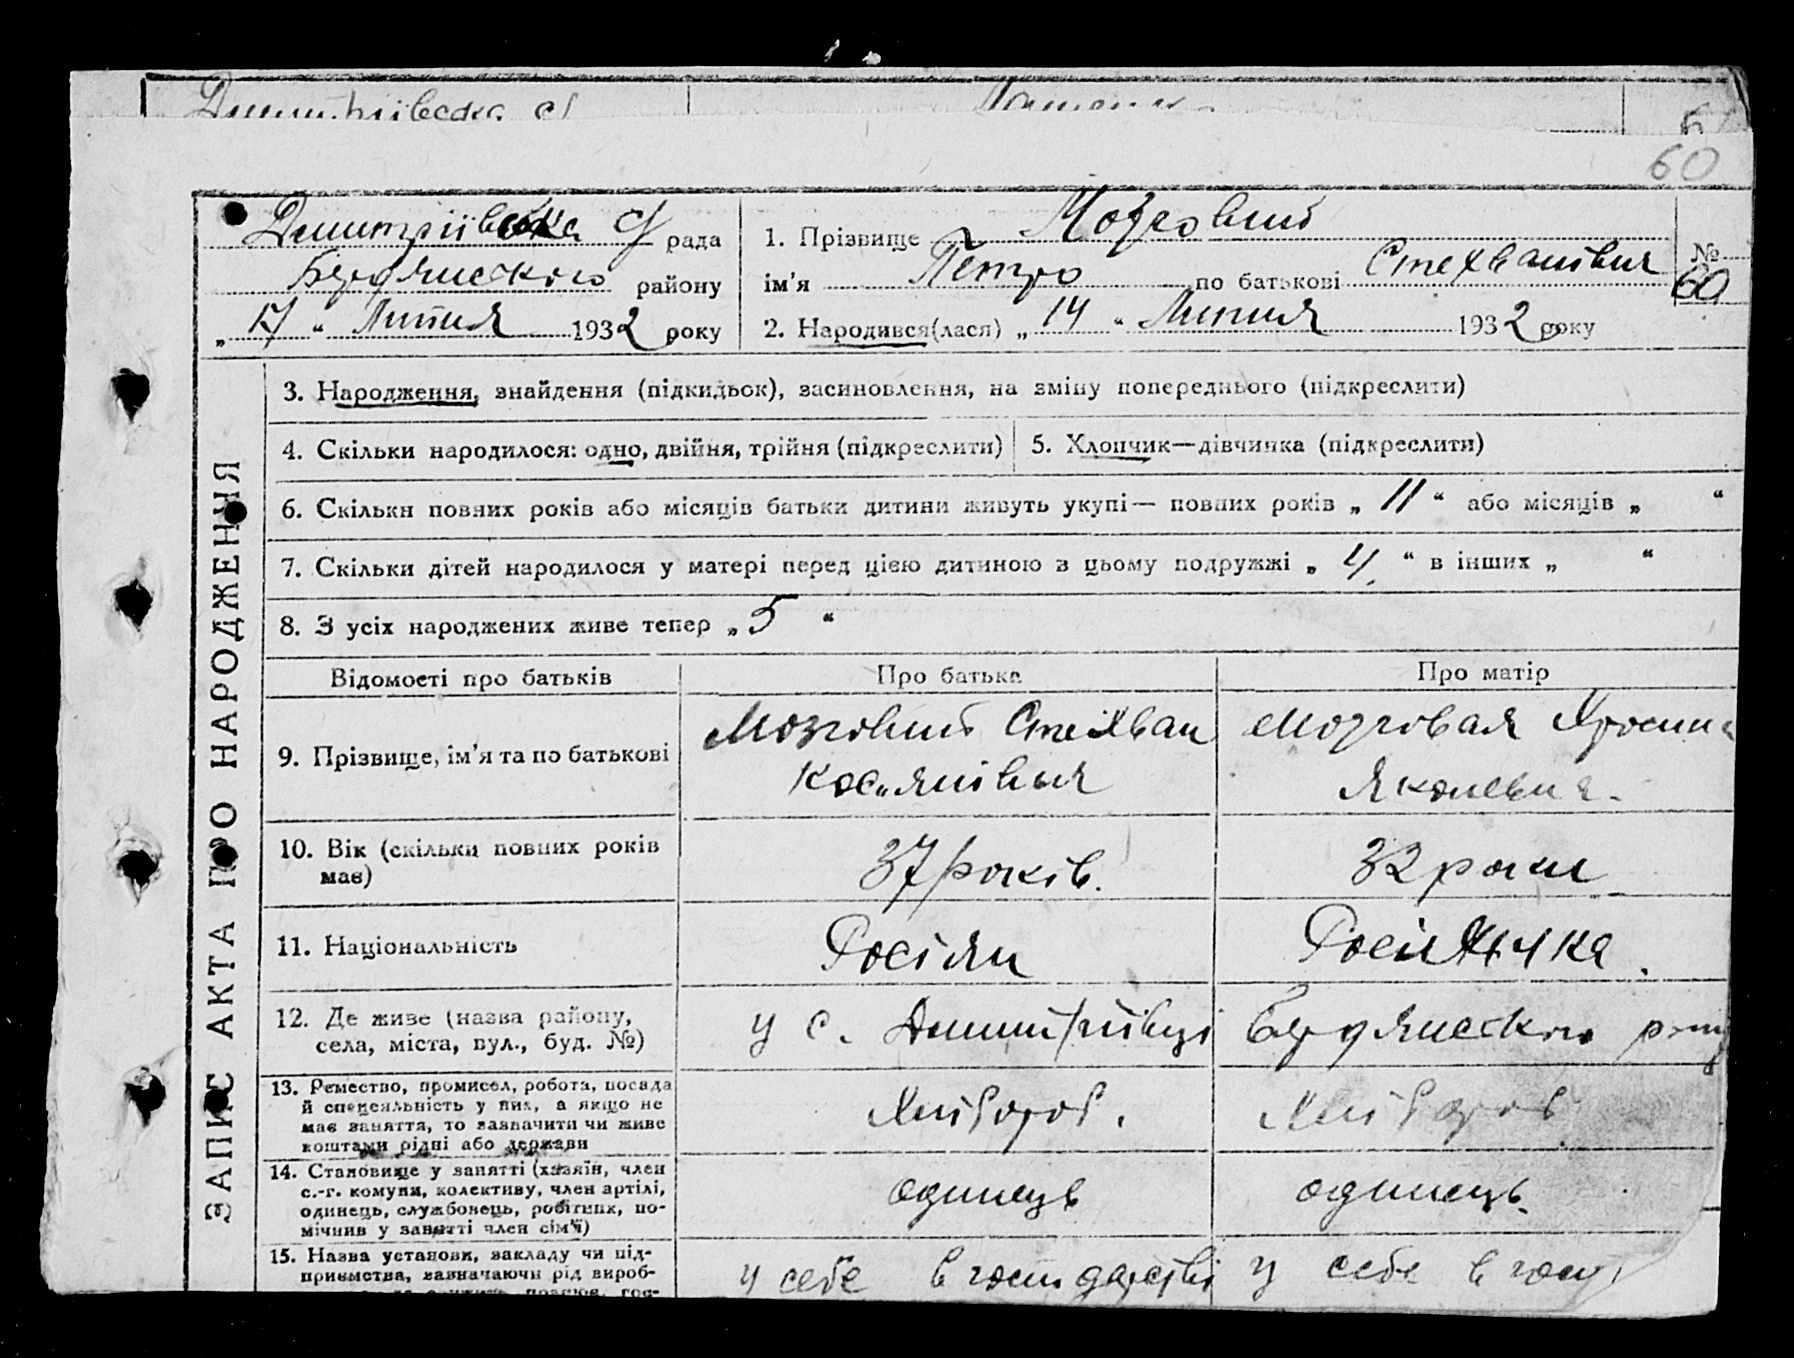 60
Дмитріівська с/ рада
Будянского району
„ 17 “ Липня 1932 року
1. Прізвище Мозговий
ім'я Петро по батькові Стехванівич
№ 60
2. Народився(лася) „ 14 “ Липня 1932 року
ЗАПИС АКТА ПРО НАРОДЖЕННЯ
3. Народження, знайдення (підкидьок), засиновлення, на зміну попереднього (підкреслити)
4. Скільки народилося: одно, двійня, трійня (підкреслити)
5. Хлопчик—дівчинка (підкреслити)
6. Скільки повних років або місяців батьки дитини живуть укупі— повних років „ 11 “ або місяців „ “
7. Скільки дітей народилося у матері перед цією дитиною в цьому подружжі „ 4 “ в інших „ “
8. З усіх народжених живе тепер „ 5 “
Відомості про батьків
Про батька
Про матір
9. Прізвище, ім'я та по батькові
Мозговий Стехван
Мозговая
10. Вік (скільки повних років
має)
37 років.
32 роки
11. Національність
Росіян
Росіянка.
12. Де живе (назва району,
села, міста, вул., буд. №)
у с. Дмитріівці Будянского
13. Ремество, промисел, робота, посада
й спеціяльність у них, а якщо не
має заняття, то зазначити чи живе
коштами рідні або держави
Хлібороб.
Хлібороб
14. Становище у занятті (хазяїн, член
с.-г. комуни, колективу, член артілі,
одинець, службовець, робітник, по-
мічник у занятті член сім'ї)
одинець
одинець.
15. Назва установи, закладу чи під-
приємства, зазначаючи рід вироб-
у себе в господарстві
у себе в госп